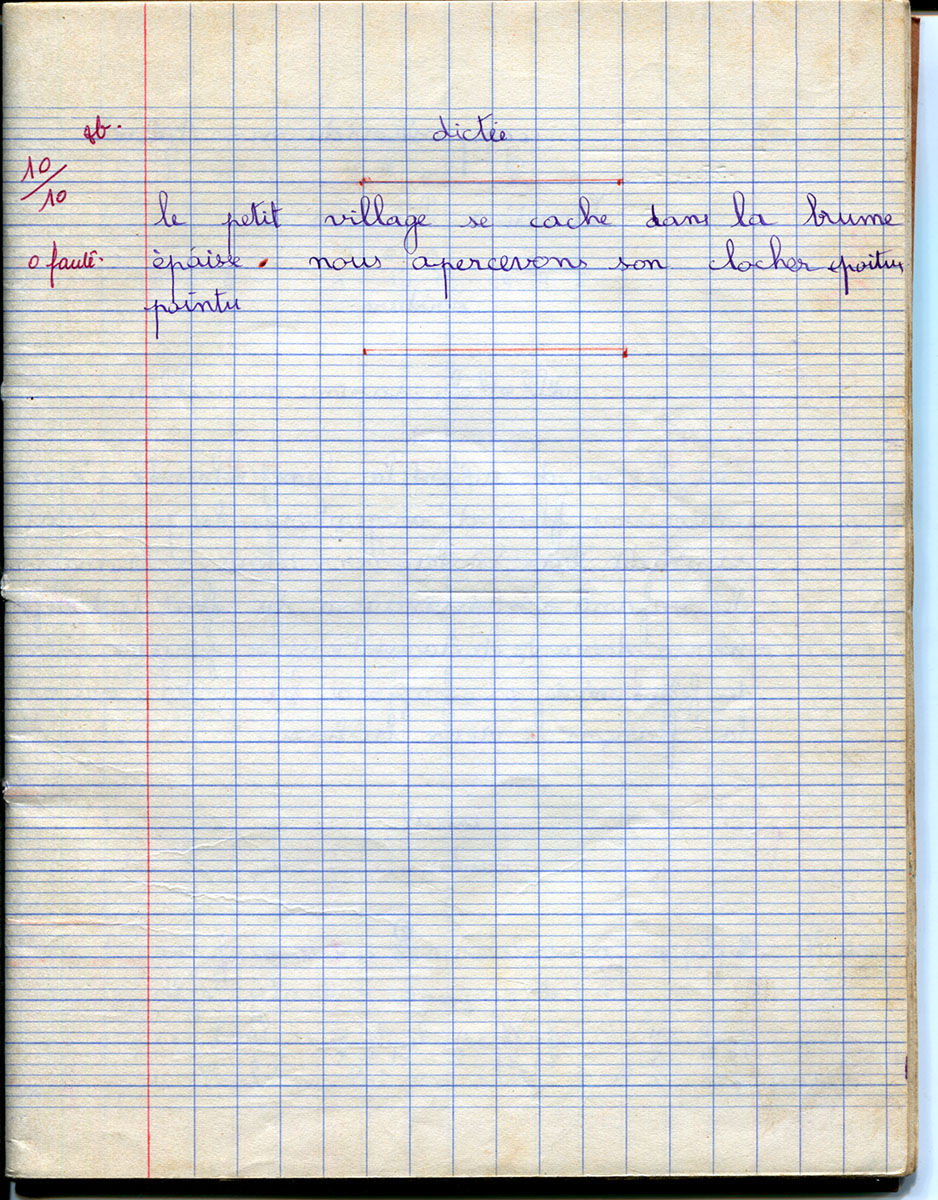 tb.
dictée
10/10
le petit village se cache dans la brume
0 faute.
épaisse. nous apercevons son clocher poitus
pointu